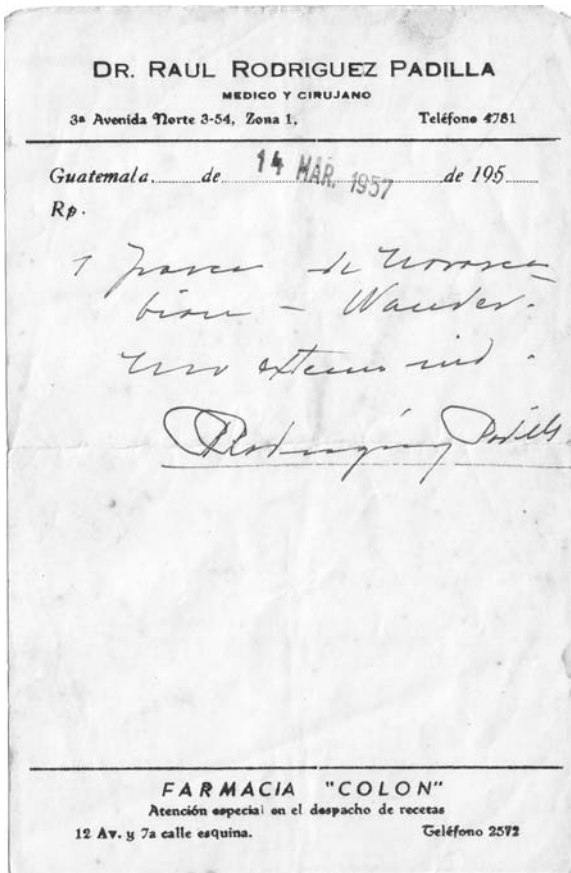 DR. RAUL RODRIGUEZ PADILLA
MEDICO Y CIRUJANO
3ª Avenida Norte 3-54, Zona 1, Teléfono 4781
Guatemala de 14 MAR. 1957 de 195
Rp.
1 frasco de
- Wander.
Uso externo ind.
Rodríguez Padilla
FARMACIA "COLON"
Atención especial en el despacho de recetas
12 Av. y 7a calle esquina. Teléfono 2572